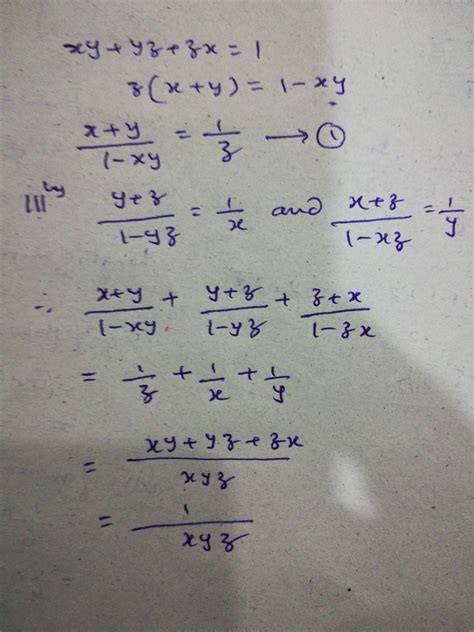 xy + yz + zx = 1
z(x+y) = 1 - xy
x+y/1-xy = 1/z → ①
|||ly y+z/1-yz = 1/x and x+z/1-xz = 1/y
∴ x+y/1-xy + y+z/1-yz + z+x/1-zx
= 1/z + 1/x + 1/y
= xy+yz+zx/xyz
= 1/xyz